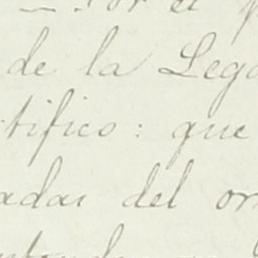 Por el p
de la Lega
tifico: que
adas del or